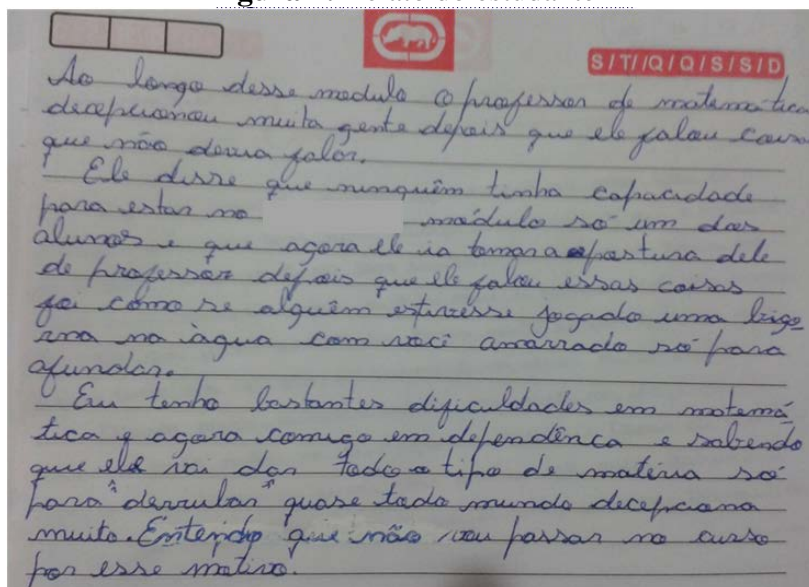 S/T/Q/Q/S/S/D
Ao longo desse modulo o professor de matemática
decepcionou muita gente depois que ele falou coisa
que não devia falar.
Ele disse que ninguêm tinha capacidade
para estar no módulo só um dos
alunos e que agora ele ia tomar a postura dele
de professor depois que ele falou essas coisas
foi como se alguêm estivesse jogado uma bigo
rna na àgua com você amarrado só para
afundar.
Eu tenho bastantes dificuldades em matemá
tica e agora comigo em dependênca e sabendo
que ele vai dar todo o tipo de matéria só
para "derrubar" quase todo mundo decepciona
muito. Entendo que não vou passar no curso
por esse motivo.